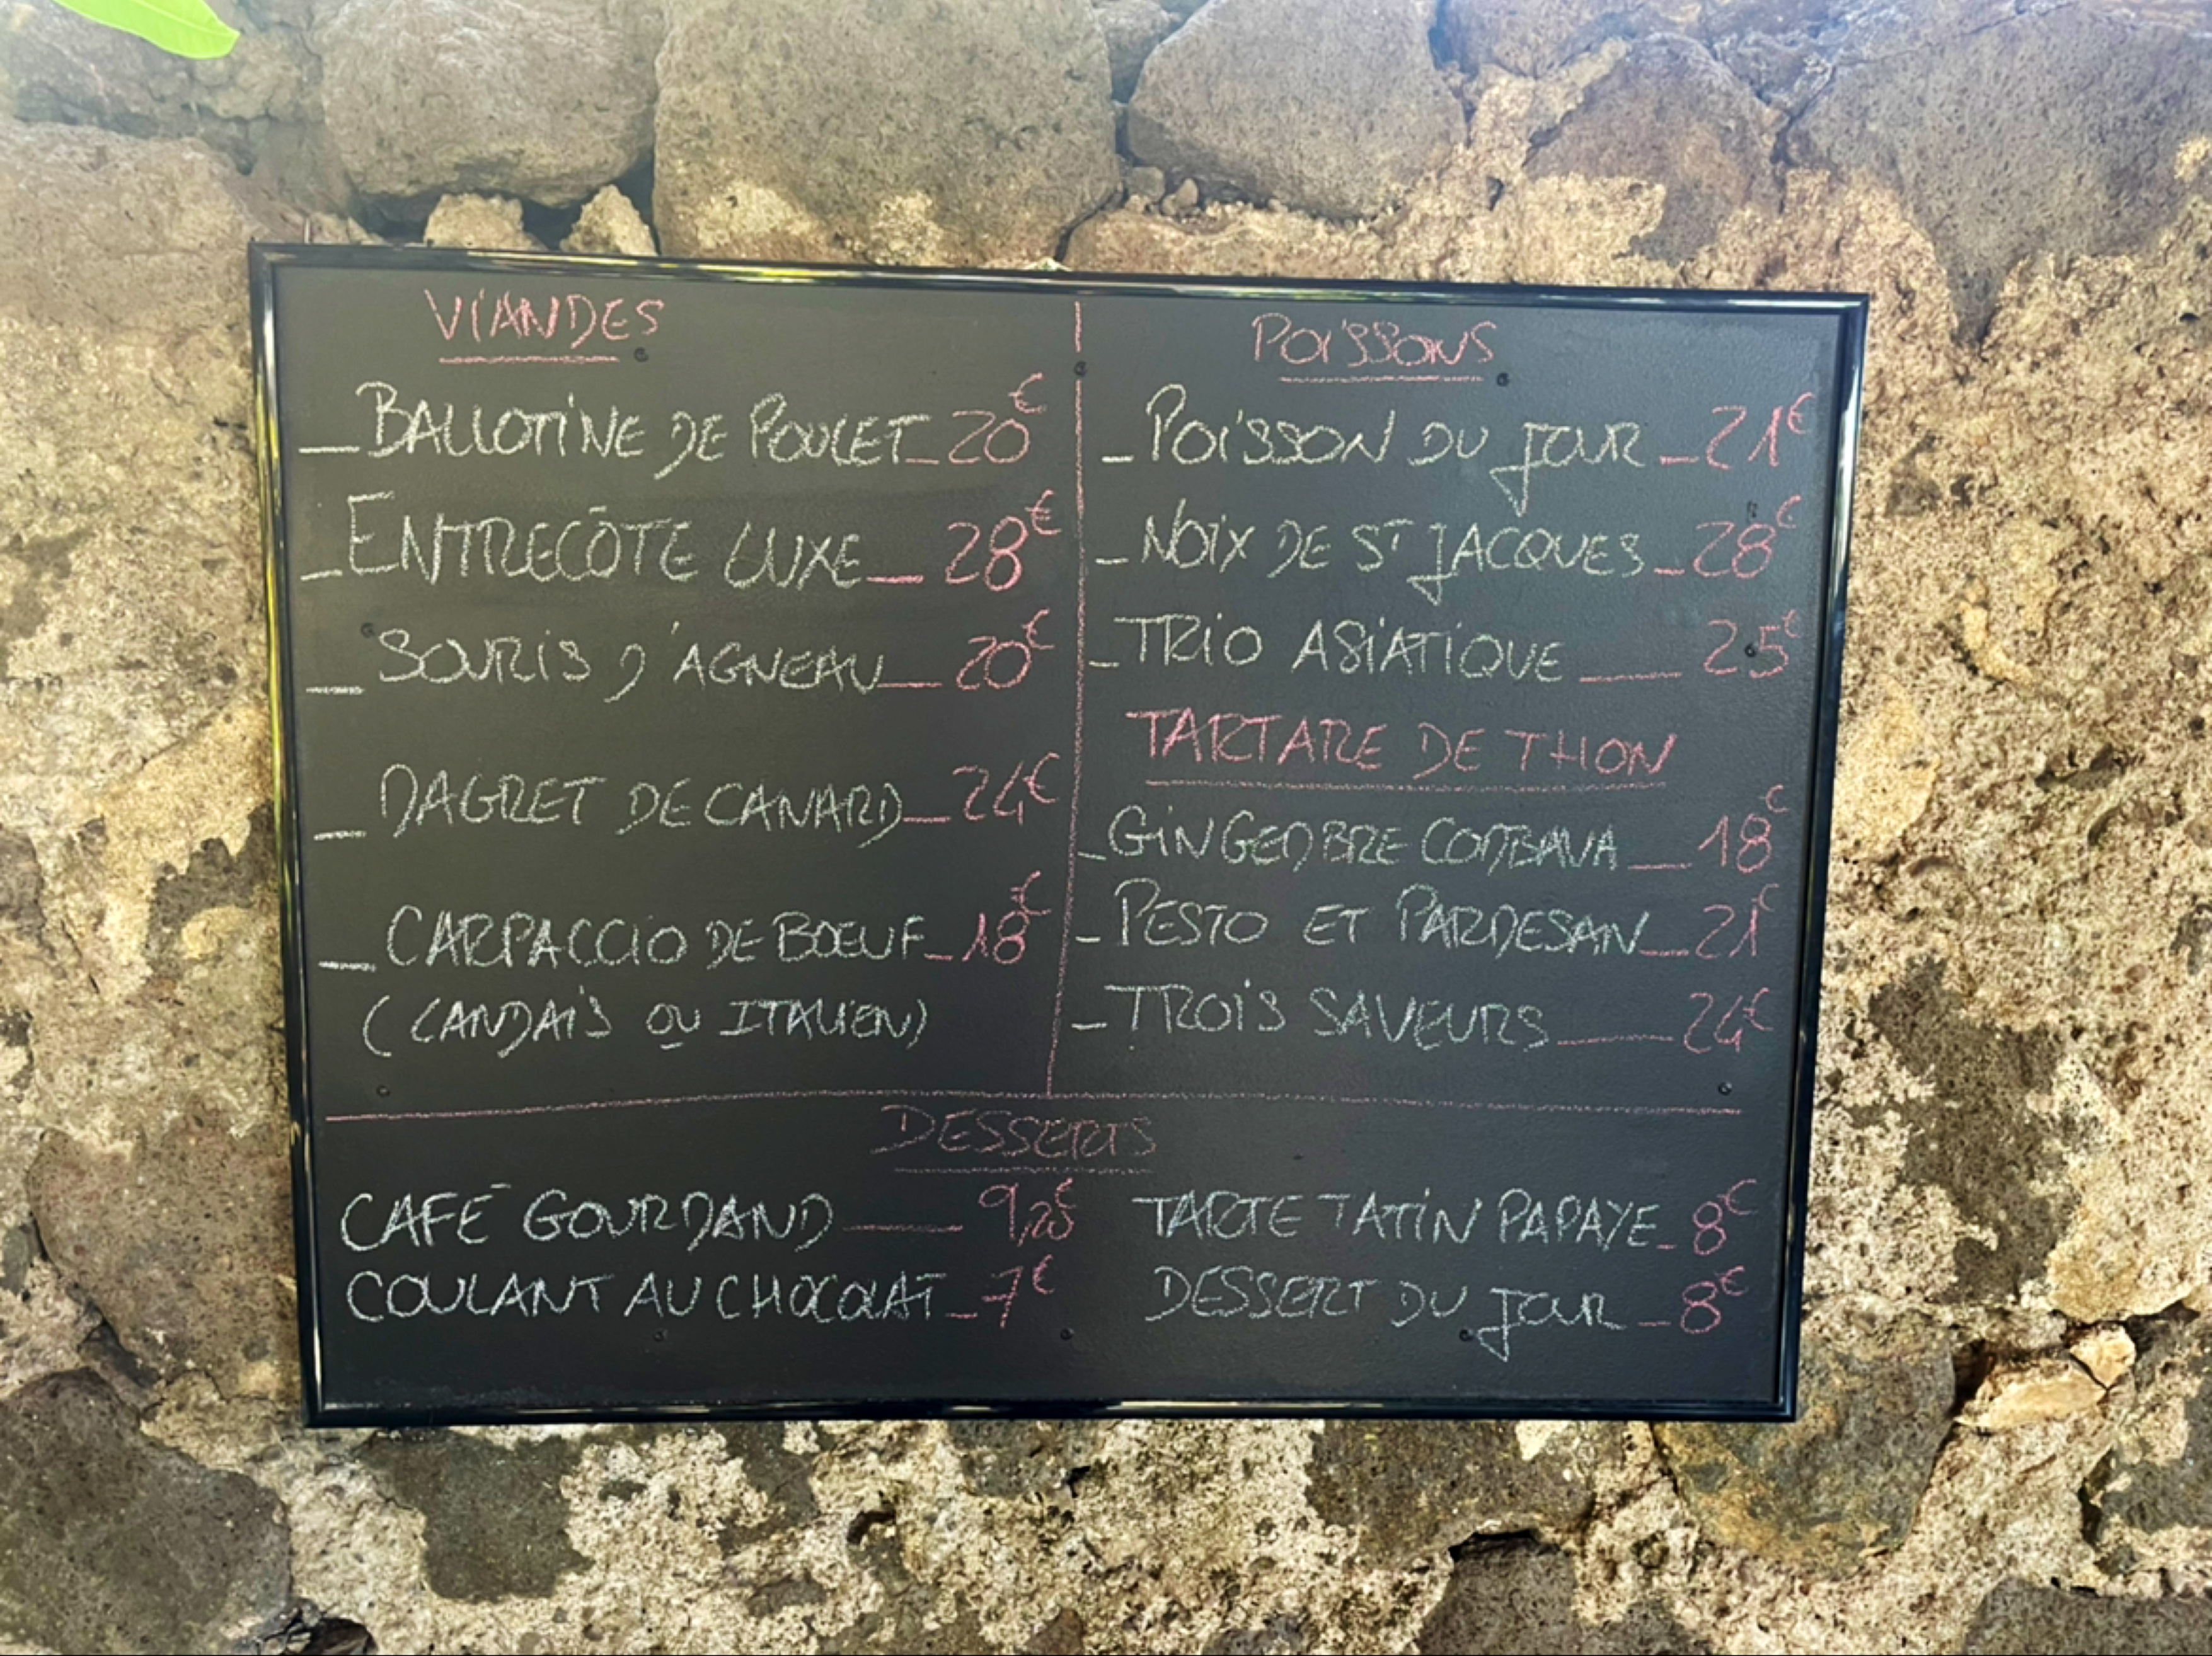 VIANDES
_BALLOTINE DE POULET_20€
_ENTRECÔTE LUXE_28€
_SOURIS D'AGNEAU_20€
_MAGRET DE CANARD_24€
_CARPACCIO DE BŒUF_18€
(LANDAIS OU ITALIEN)
POISSONS
_POISSON DU JOUR_21€
_NOIX DE ST JACQUES_28€
_TRIO ASIATIQUE_25€
TARTARE DE THON
_GINGEMBRE COMBAVA_18€
_PESTO ET PARMESAN_21€
_TROIS SAVEURS_24€
DESSERTS
CAFÉ GOURMAND_9,20€
COULANT AU CHOCOLAT_7€
TARTE TATIN PAPAYE_8€
DESSERT DU JOUR_8€